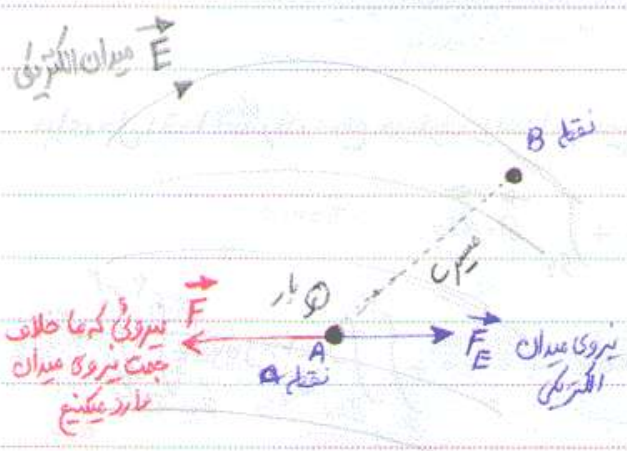 میدان الکتریکی E
نقطه B
مسیر
بار Q
A
نقطه A
F
نیروئی که ما خلاف
جهت نیروی میدان
وارد میکنیم
F E
نیروی میدان
الکتریکی